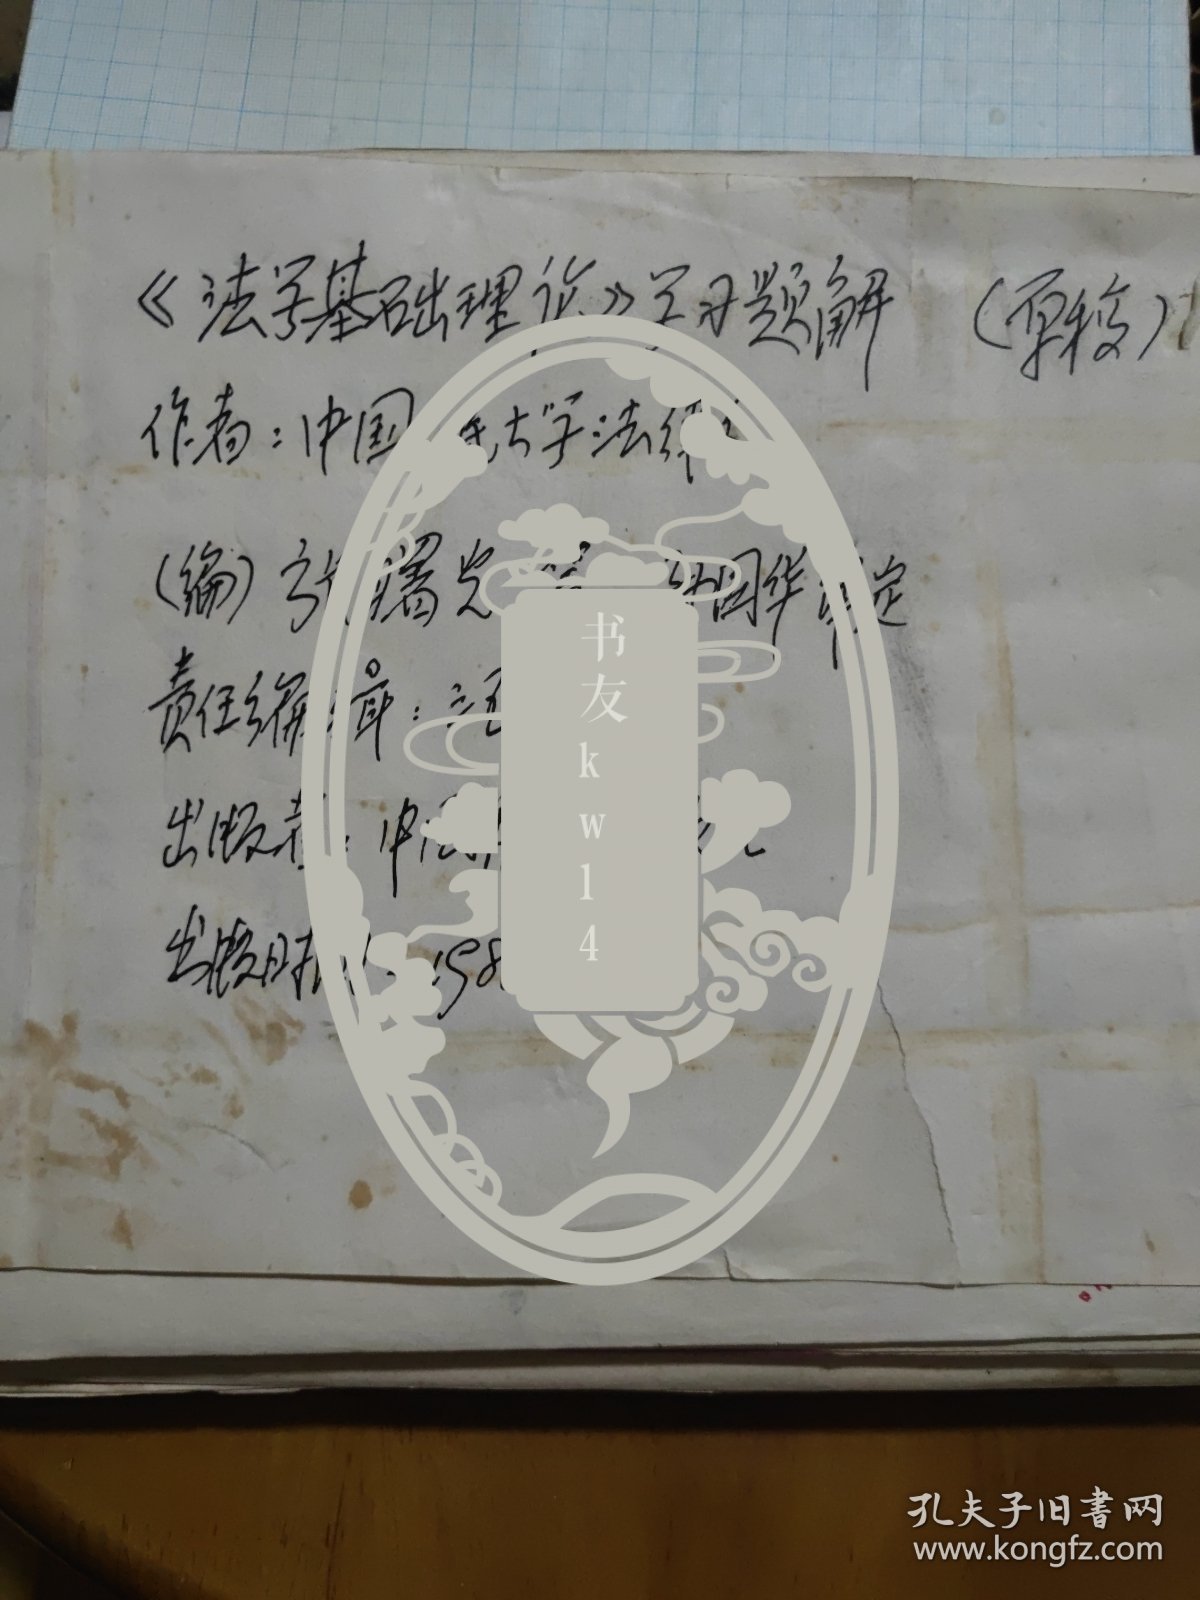 《法学基础理论》学习题解 (原稿)
作者:中国 民大学法律
(编) 张曙光 国华审定
责任编辑:
出版者: 中国
出版时间: 198
书友kwl4
孔夫子旧书网
www.kongfz.com